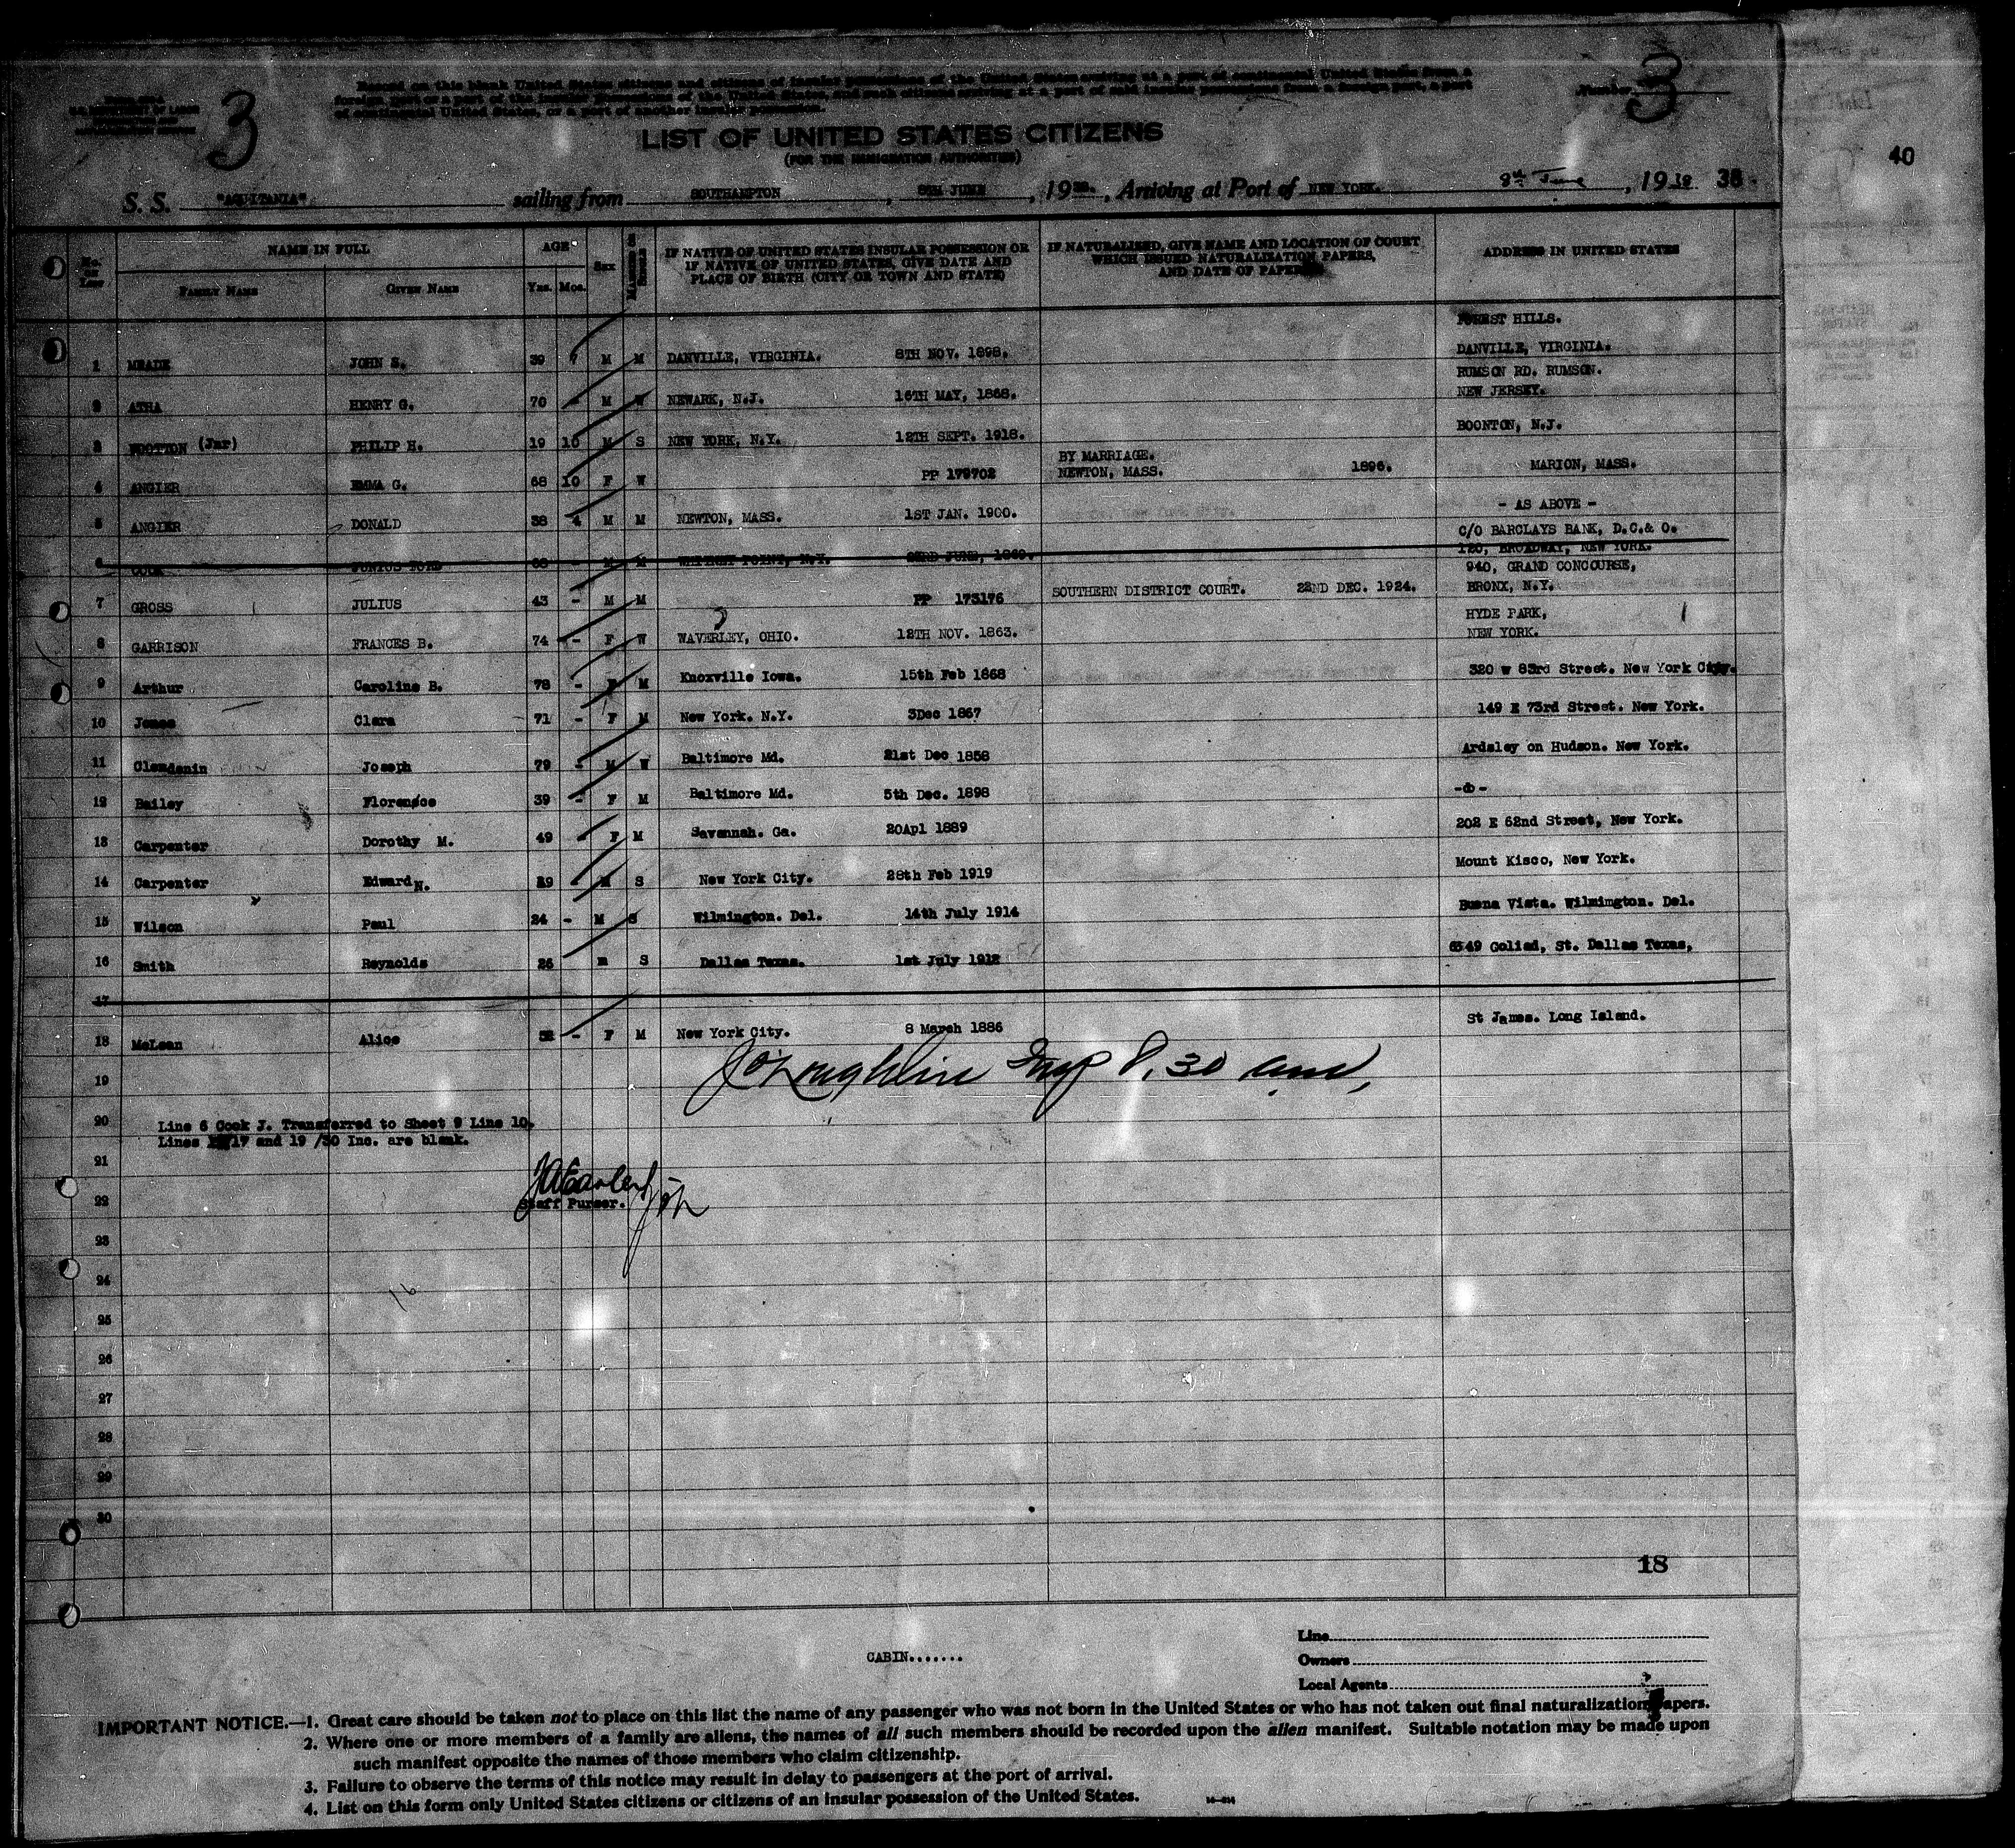 3
3
LIST OF UNITED STATES CITIZENS
(FOR THE IMMIGRATION AUTHORITIES)
40
S. S. "AQUITANIA" sailing from SOUTHAMPTON, JUNE, 19 , Arriving at Port of NEW YORK. 8th June, 19 38 38.
No. on List
NAME IN FULL
FAMILY NAME GIVEN NAME
AGE
Yrs. Mos.
Sex
IF NATIVE OF UNITED STATES INSULAR POSSESSION OR IF NATIVE OF UNITED STATES, GIVE DATE AND PLACE OF BIRTH (CITY OR TOWN AND STATE)
IF NATURALIZED, GIVE NAME AND LOCATION OF COURT WHICH ISSUED NATURALIZATION PAPERS, AND DATE OF PAPERS
ADDRESS IN UNITED STATES
FOREST HILLS.
1 MEADE JOHN S. 39 7 M M DANVILLE, VIRGINIA. 8TH NOV. 1898. DANVILLE, VIRGINIA.
RUMSON RD. RUMSON.
2 ATHA HENRY G. 70 - M W NEWARK, N.J. 16TH MAY, 1868. NEW JERSEY.
3 WOOTTON (Jnr) PHILIP H. 19 10 M S NEW YORK, N.Y. 12TH SEPT. 1918. BOONTON, N.J.
BY MARRIAGE.
4 ANGIER EMMA G. 68 10 F W PP 179702 NEWTON, MASS. 1896. MARION, MASS.
5 ANGIER DONALD 38 4 M M NEWTON, MASS. 1ST JAN. 1900. - AS ABOVE -
C/O BARCLAYS BANK, D.C.& O.
6 COOK JUNIUS FORD 68 - M M WHITNEY POINT, N.Y. 23RD JUNE, 1869. 120, BROADWAY, NEW YORK.
940, GRAND CONCOURSE,
7 GROSS JULIUS 43 - M M PP 173176 SOUTHERN DISTRICT COURT. 22ND DEC. 1924. BRONX, N.Y.
HYDE PARK,
8 GARRISON FRANCES B. 74 - F W WAVERLEY, OHIO. 12TH NOV. 1863. NEW YORK.
9 Arthur Caroline B. 78 - F M Knoxville Iowa. 15th Feb 1868 320 w 83rd Street. New York City.
10 Jones Clara 71 - F M New York. N.Y. 3Dec 1867 149 E 73rd Street. New York.
11 Clendenin Joseph 79 - M W Baltimore Md. 21st Dec 1858 Ardsley on Hudson. New York.
12 Bailey Florence 39 - F M Baltimore Md. 5th Dec. 1898 -do-
13 Carpenter Dorothy M. 49 - F M Savannah. Ga. 20Apl 1889 202 E 62nd Street, New York.
14 Carpenter Edward N. 19 - M S New York City. 28th Feb 1919 Mount Kisco, New York.
15 Wilson Paul 24 - M S Wilmington. Del. 14th July 1914 Buena Vista. Wilmington. Del.
16 Smith Reynolds 26 m S Dallas Texas. 1st July 1912 6349 Goliad, St. Dallas Texas,
17
18 McLean Alice 52 - F M New York City. 8 March 1886 St James. Long Island.
J O'Loughlin Insp 8.30 am,
19
20
Line 6 Cook J. Transferred to Sheet 9 Line 10.
Lines 17 and 19 /30 Inc. are blank.
21
22
Staff Purser.
23
24
16
25
26
27
28
29
30
18
CABIN.......
Line
Owners
Local Agents
IMPORTANT NOTICE.—1. Great care should be taken not to place on this list the name of any passenger who was not born in the United States or who has not taken out final naturalization papers.
2. Where one or more members of a family are aliens, the names of all such members should be recorded upon the alien manifest. Suitable notation may be made upon
such manifest opposite the names of those members who claim citizenship.
3. Failure to observe the terms of this notice may result in delay to passengers at the port of arrival.
4. List on this form only United States citizens or citizens of an insular possession of the United States.